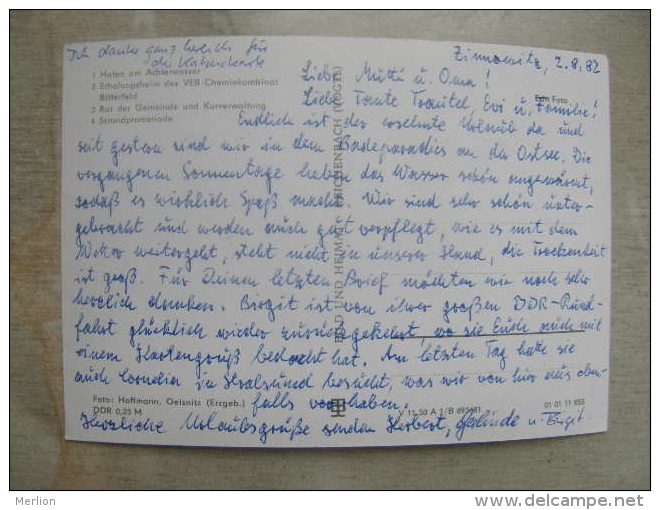 Ich danke ganz herzlich für
die Kabaukarte
Zinnowitz, 2.8.82
1 Hafen am Achterwasser
2 Erholungsheim des VEB Chemiekombinat
Bitterfeld
3 Rat der Gemeinde und Kurverwaltung
4 Strandpromenade
Liebe Mutti u. Oma!
Liebe Tante Trautel, Evi u. Familie!
Endlich ist der ersehnte Urlaub da und
seit gestern sind wir in dem Badeparadies an der Ostsee. Die
vergangenen Sonnentage haben das Wasser schön angewärmt,
sodaß es wirklich Spaß macht. Wir sind sehr schön unter-
gebracht und werden auch gut verpflegt, wie es mit dem
Wetter weitergeht, steht nicht in unserer Hand, die Trockenheit
ist groß. Für Deinen letzten Brief möchten wir noch sehr
herzlich danken. Birgit ist von ihrer großen DDR-Rund-
fahrt glücklich wieder zurückgekehrt, wo sie Euch auch mit
einem Kartengruß bedacht hat. Am letzten Tag hatte sie
auch Cornelia in Stralsund besucht, was wir von hier aus eben-
falls vorhaben.
Foto: Hoffmann, Oelsnitz (Erzgeb.)
DDR 0,25 M
V 11 50 A 1/B
01 01 11
Herzliche Urlaubsgrüße senden Herbert, Gerlinde u. Birgit.
BILD UND HEIMAT REICHENBACH (VOGTL)
Merlion
www.delcampe.net